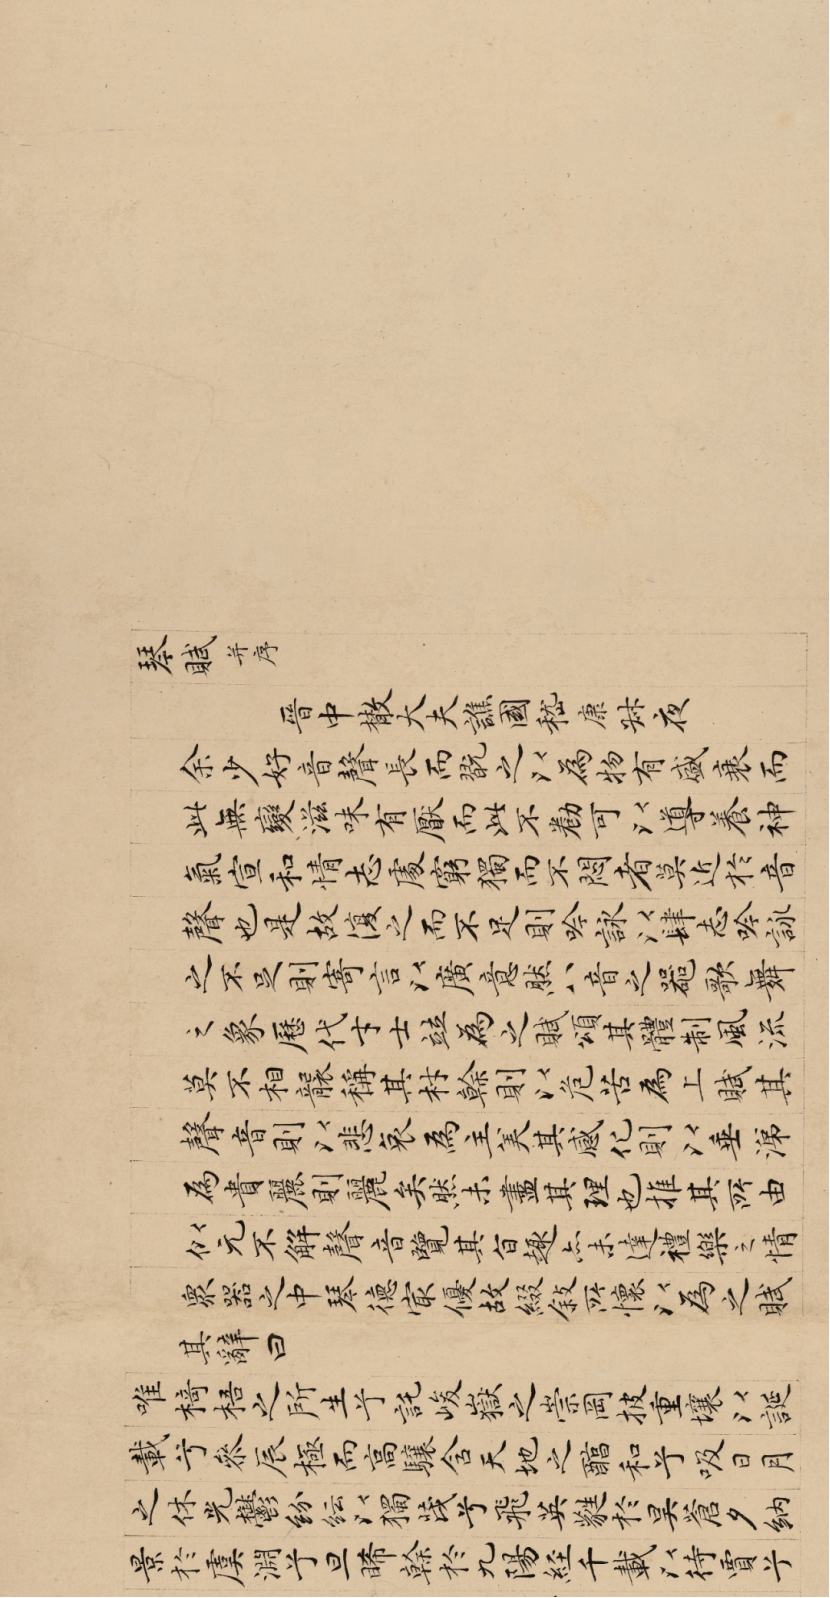 琴賦 并序
晉中散大夫譙國嵇康叔夜
余少好音聲長而翫之以為物有盛衰而
此無變滋味有厭而此不勌可以導養神
氣宣和情志處窮獨而不悶者莫近於音
聲也是故復之而不足則吟詠以肆志吟詠
之不足則寄言以廣意然八音之器歌舞
之象歷代才士並為之賦頌其體制風流
莫不相襲稱其材幹則以危苦為上賦其
聲音則以悲哀為主美其感化則以垂涕
為貴麗則麗矣然未盡其理也推其所由
似元不解聲音覽其旨趣亦未達禮樂之情
眾器之中琴德最優故綴敘所懷以為之賦
其辭曰
唯椅梧之所生兮託峻嶽之崇岡披重壤以誕
載兮參辰極而高驤含天地之醇和兮吸日月
之休光鬱紛紜以獨茂兮飛英蕤於昊蒼夕納
景於虞淵兮旦晞幹於九陽経千載以待賈兮